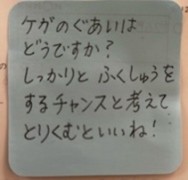 ケガのぐあいは
どうですか？
しっかりと ふくしゅうを
するチャンスと考えて
とりくむといいね！